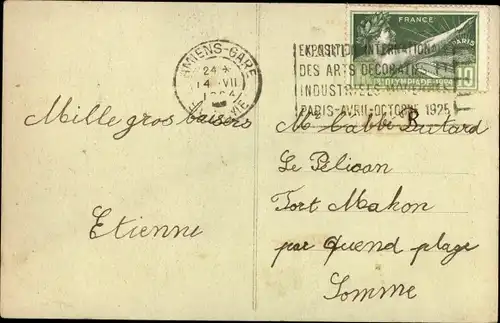 FRANCE
PARIS
10
OLYMPIADE 1924
AMIENS-GARE
24 *
14 VII
EXPOSITION INTERNATIONALE
DES ARTS DECORATIFS ET
INDUSTRIELS MODERNES
PARIS-AVRIL-OCTOBRE 1925
Mille gros baisers
Etienne
Mr l'abbé
Le Pélican
Fort Mahon
par Quend plage
Somme